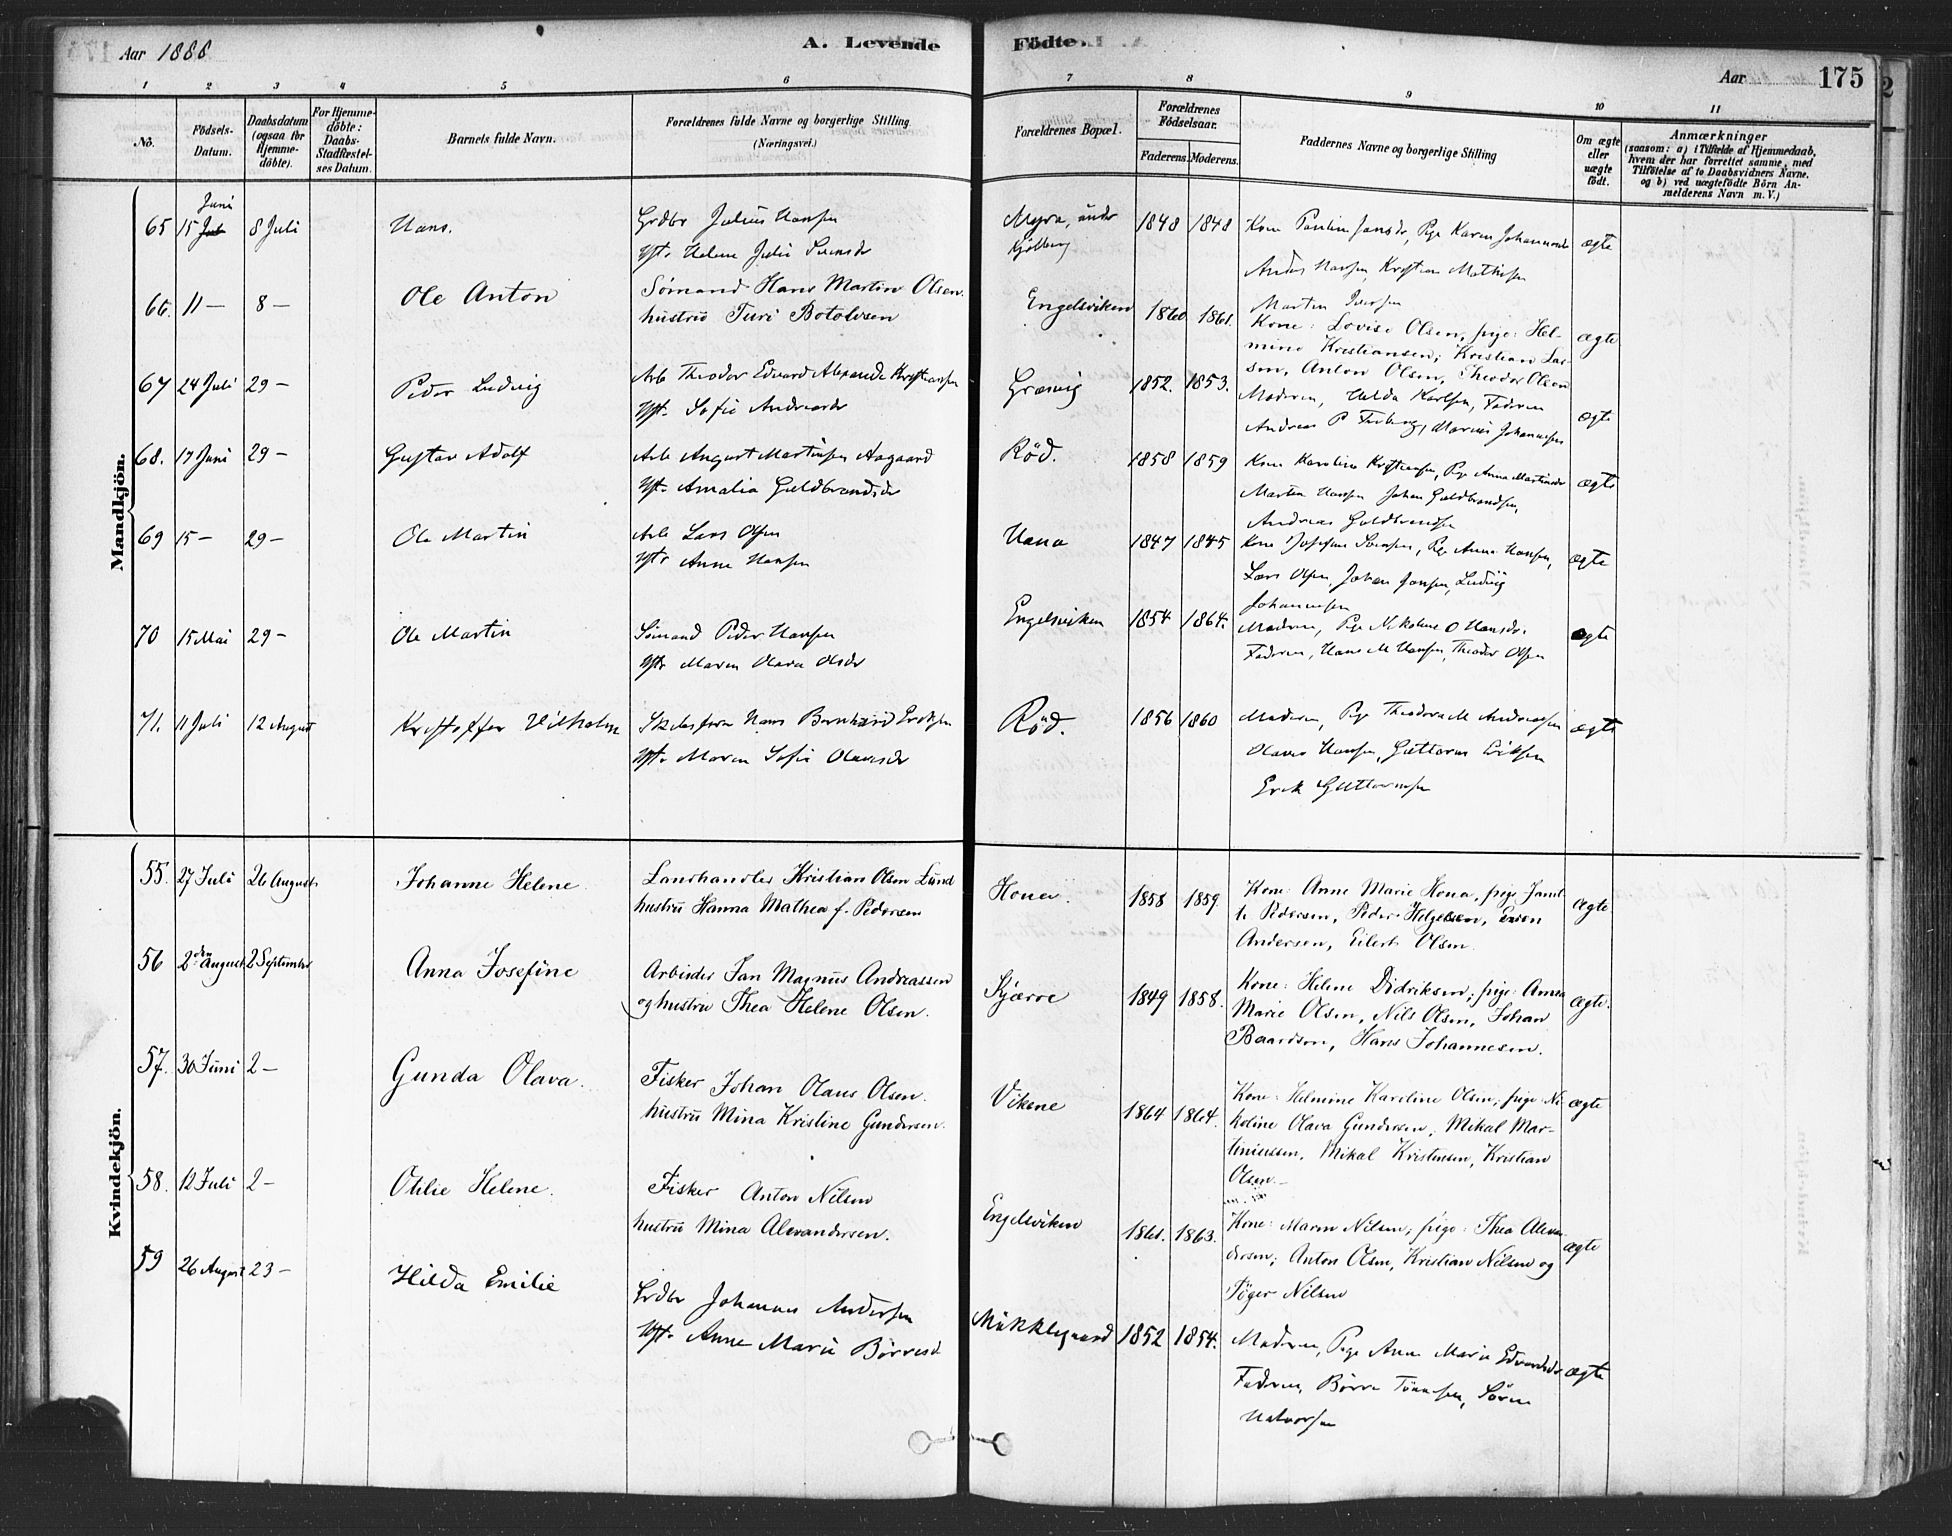 Aar 1888
A. Levende Fødte.
Aar 175
1 2 3 4 5 6 7 8 9 10 11
No.
Fødsels-Datum.
Daabsdatum (ogsaa for Hjemme-döbte).
For Hjemme-döbte: Daabs-Stadfæstel-ses Datum.
Barnets fulde Navn.
Forældrenes fulde Navne og borgerlige Stilling (Næringsvei.)
Forældrenes Bopæl.
Forældrenes Födselsaar.
Faderens. Moderens.
Faddernes Navne og borgerlige Stilling
Om ægte eller uægte födt.
Anmærkninger
(saasom: a) i Tilfælde af Hjemmedaab,
hvem der har forrettet samme, med
Tilföielse af to Daabsvidners Navne.
og b) ved uægtefödte Börn An-
melderens Navn m. V.)
Mandkjön.
Juni
65 15 8 Juli Hans. Grdbr Julius Hansen 1848 1848 ægte
Hst. Helene Julie
Anders Hansen, Kristian Mathisen
Martin Iversen
66. 11 — 8 — Ole Anton Sømand Hans Martin Olsen. Engelsviken 1860 1861. Kone: Lovise Olsen, pige: Hel- ægte
hustru Turi Botolvsen
mine Kristiansen; Kristian Lar-
sen, Anton Olsen, Theodor Olsen
67 24 Juli 29 — Peder Ludvig Arb Theodor Edvard Alexander Kristiansen Græsvig 1852. 1853. Moderen, Hilda Karlsen, Faderen ægte
Hst. Sofie Andreasdr
Andreas P Marius Johannesen
68. 17 Juni 29 — Gustav Adolf Arb August Martinsen Aagaard Röd. 1858 1859 Kone Karoline Kristiansen, Pige Anna Martinsdr ægte
Hst. Amalia Guldbrandsdr
Martin Hansen Johan Guldbrandsen,
Andreas Guldbrandsen
69 15 — 29 — Ole Martin Arb Lars Olsen Haua 1847 1845 Kone Josefine Pige Anne Hansen, ægte
Hst. Anne Hansen
Lars Olsen, Johan Jansen, Ludvig
Johannesen
70 15 Mai 29 — Ole Martin Sömand Peder Hansen Engelsviken 1854 1864. Moderen, Pige Nikoline O Hansdr. ægte
Hst. Maren Olava Olsdr
Faderen, Hans M Hansen, Theodor Olsen
71. 11 Juli 12 August Kristoffer Vilhelm Hans Bernhard Eriksen Röd. 1856 1860 Moderen, Pige Theodora M Andreassen ægte
Hst. Maren Sofie Olavesdr
Olaves Hansen, Guttorm Eriksen
Erik Guttormsen
Kvindekjön.
55. 27 Juli 26 August Johanne Helene. Landhandler Kristian Olsen Lund Houa. 1858 1859. Kone: Anne Marie Houa, pige Jani- ægte
hustru Hanna Mathea f. Pedersen
Pedersen, Peder Helgesen,
Andersen, Eilert Olsen.
56 2den August 2 September Anna Josefine Arbeider Jan Magnus Andreassen Kjærve 1849 1858. Kone: Helene Didriksen; pige: Anna ægte.
og hustru Thea Helene Olsen.
Marie Olsen, Nils Olsen, Johan
Baardsen, Hans Johannesen.
57. 30 Juni 2 — Gunda Olava. Fisker Johan Olaus Olsen. Vikene 1864 1864. Kone: Helmine Karoline Olsen; pige: Ni- ægte
hustru Mina Kristine Gundersen.
koline Olava Gundersen, Mikal Mar-
tiniussen, Mikal Kristensen, Kristian
Olsen. —
58. 12 Juli 2 — Othlie Helene. Fisker Anton Nilsen Engelsviken 1861. 1863. Kone: Maren Nilsen; pige: Thea Alexan- ægte
hustru Mina Alexandersen.
dersen; Anton Olsen, Kristian Nilsen og
Töger Nilsen
59 26 August 23 — Hilda Emilie Grdbr Johannes Andersen Mikklegaard 1852 1854. Moderen, Pige Anne Marie Edvardsdr ægte
Hst. Anne Marie Börresd
Faderen, Börre Tönnesen, Sören
Halvorsen